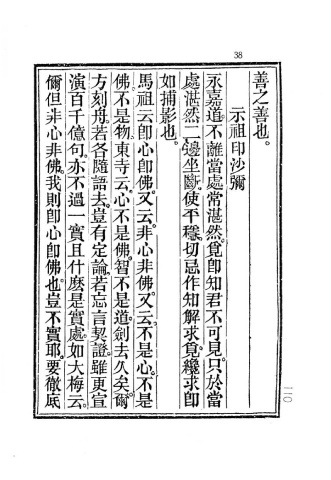 38
善之善也。
示祖印沙彌
永嘉道不離當處常湛然覓即知君不可見只於當
處湛然二邊坐斷使平穩切忌作知解求覓纔求即
如捕影也。
馬祖云即心即佛又云非心非佛又云不是心不是
佛不是物東寺云心不是佛智不是道劍去久矣爾
方刻舟若各隨語去豈有定論若忘言契證雖更宣
演百千億句亦不過一實且什麼是實處如大梅云
爾但非心非佛我則即心即佛也豈不實耶要徹底
二〇